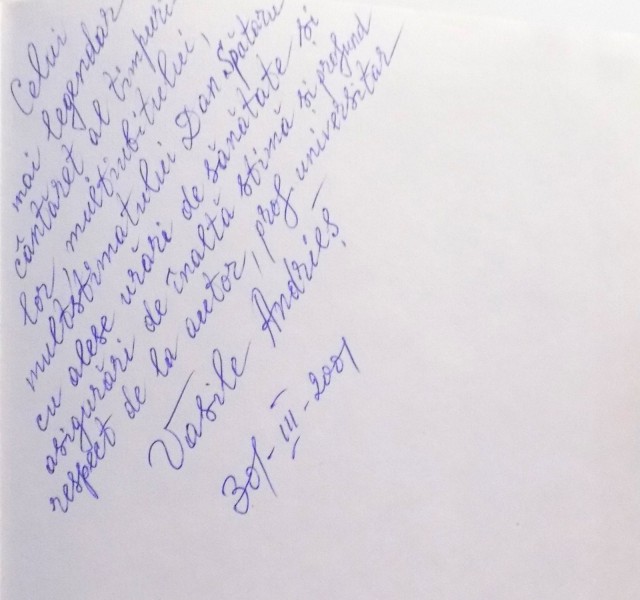 Celui
mai legendar
cântăreț al timpuri
lor, multiubitului,
multstimatului Dan Spătaru
cu alese urări de sănătate și
asigurări de înaltă stimă și profund
respect de la autor, prof. universitar
Vasile Andrieș
30-III-2001